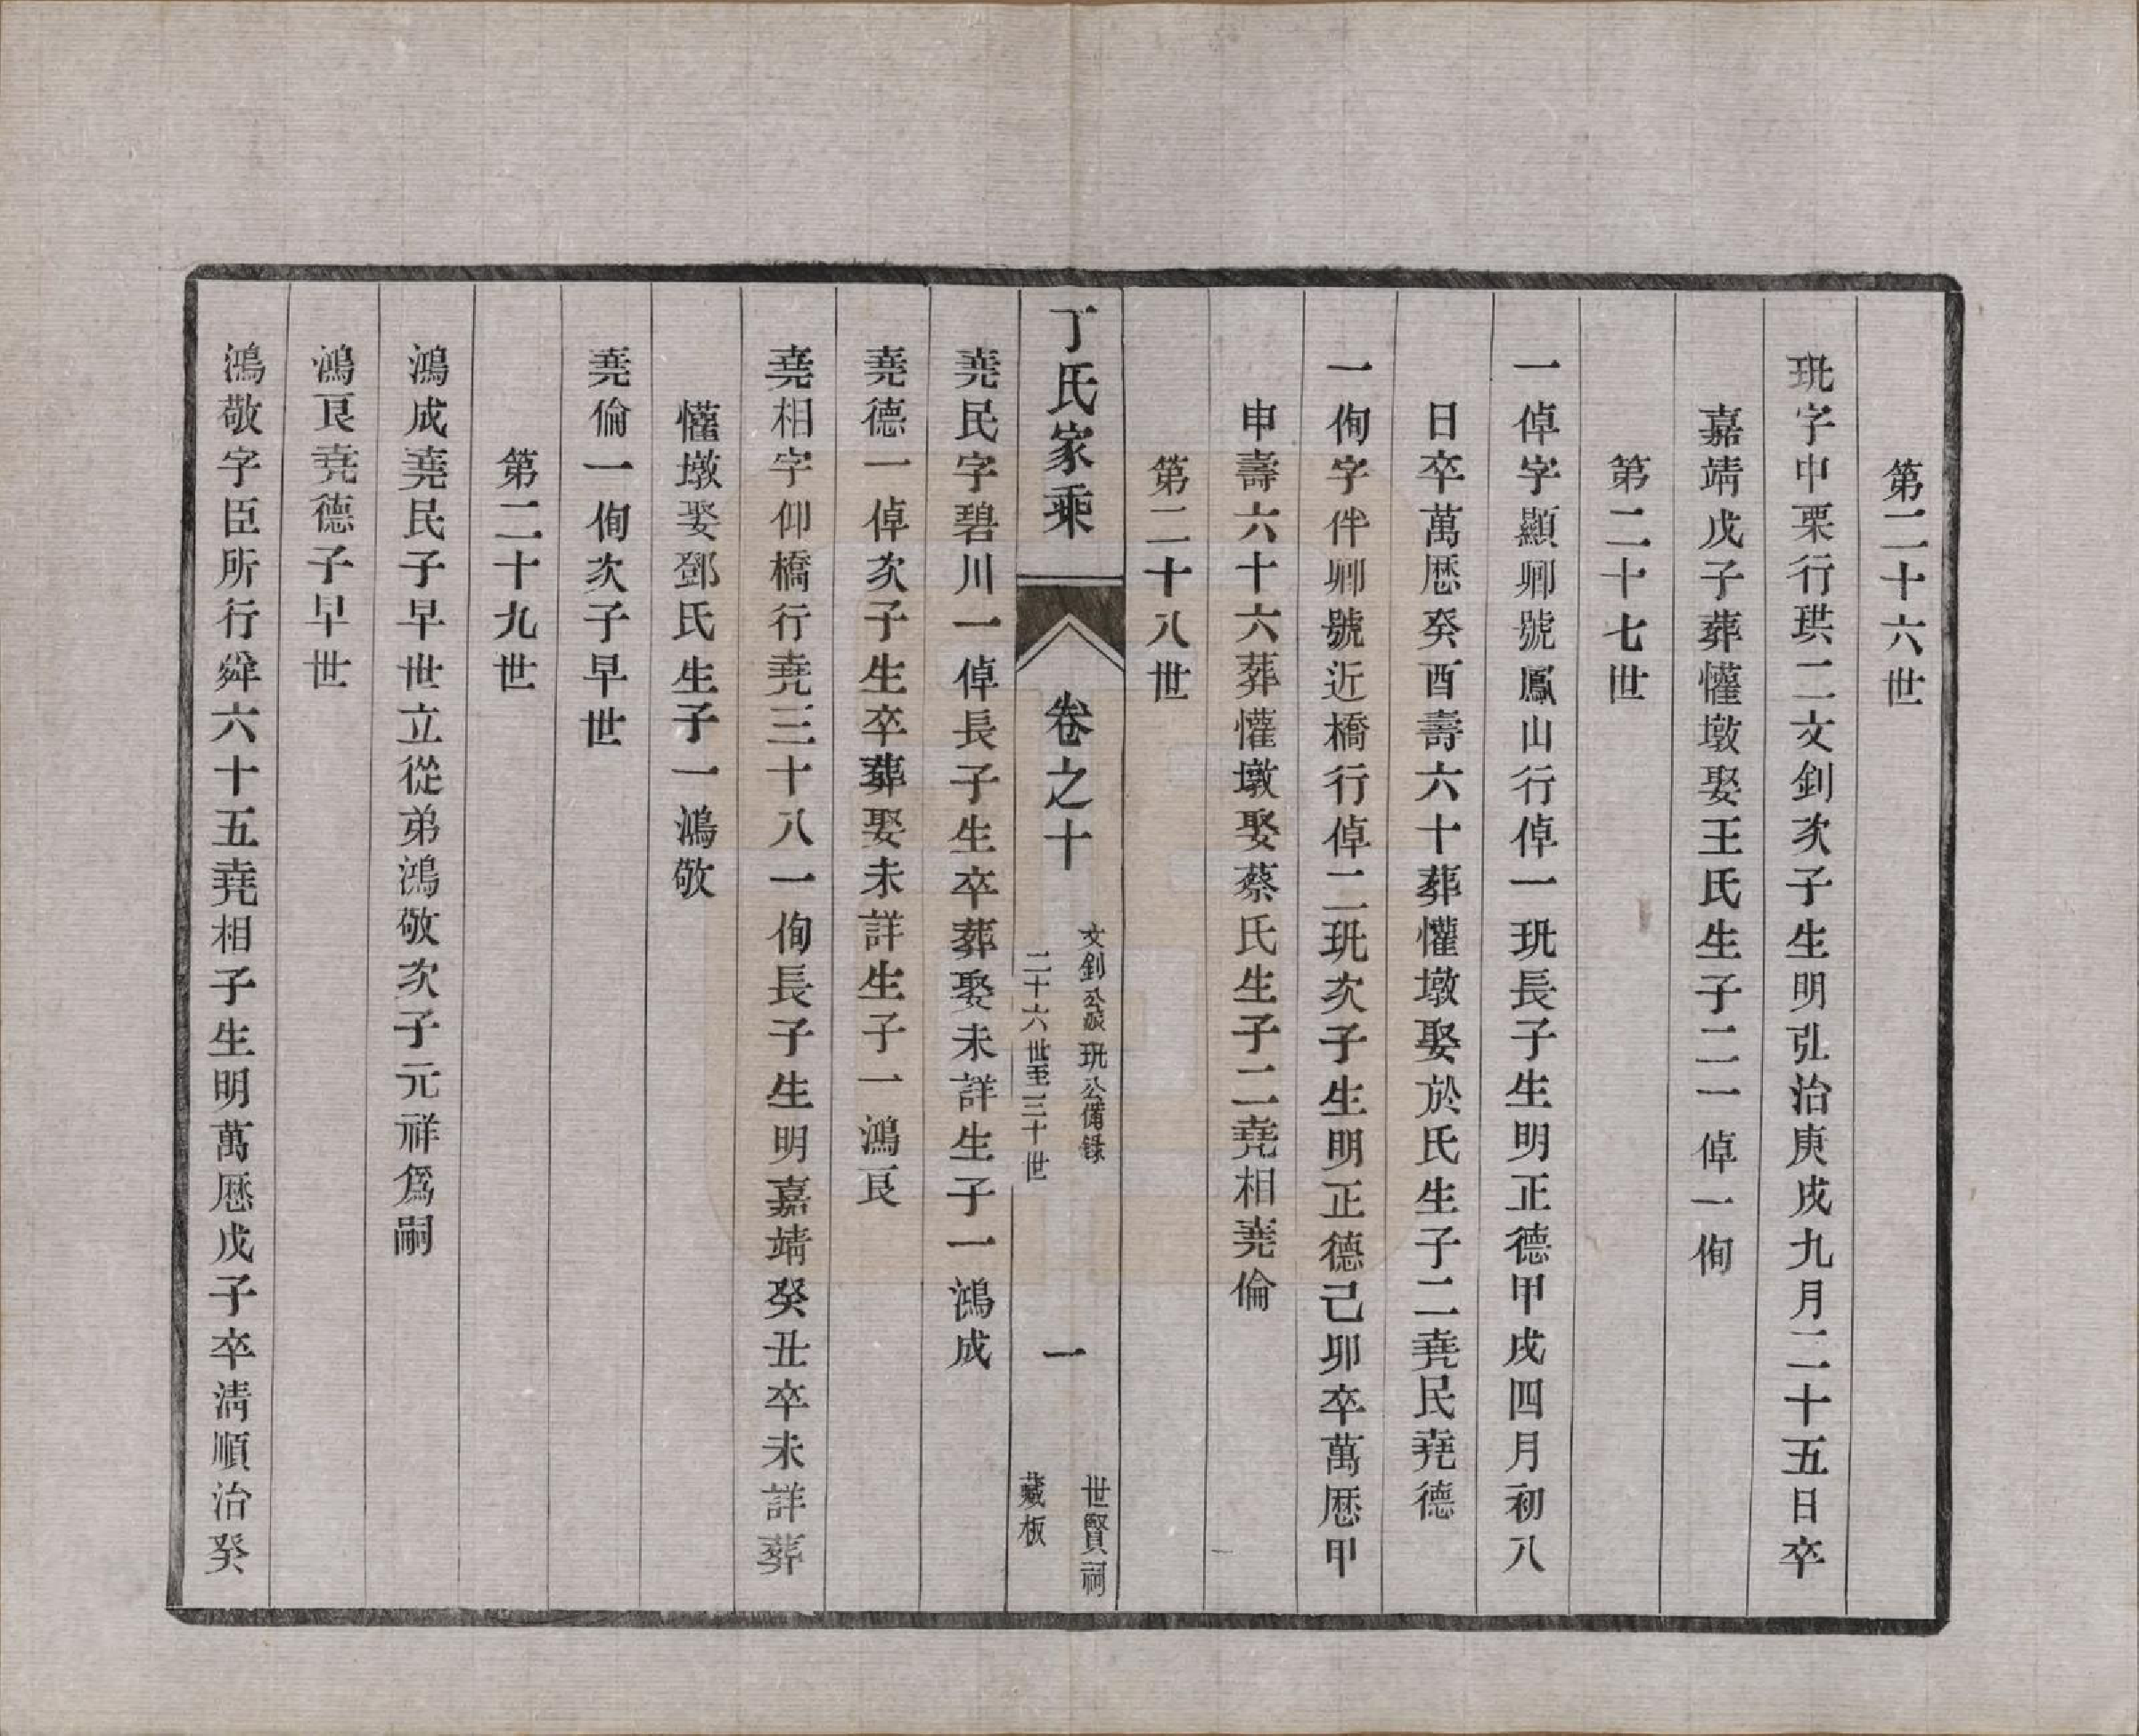 第二十六世
玭字中栗行珙二文釗次子生明弘治庚戌九月二十五日卒
嘉靖戊子葬懽墩娶王氏生子二一倬一侚
第二十七世
一倬字顯卿號鳳山行倬一玭長子生明正德甲戌四月初八
日卒萬厯癸酉壽六十葬懽墩娶於氏生子二堯民堯德
一侚字伴卿號近橋行倬二玭次子生明正德己卯卒萬厯甲
申壽六十六葬懽墩娶蔡氏生子二堯相堯倫
第二十八世
丁氏家乘
卷之十
文釗公派玭公備錄
二十六世至三十世
一
世賢祠
藏板
堯民字碧川一倬長子生卒葬娶未詳生子一鴻成
堯德一倬次子生卒葬娶未詳生子一鴻艮
堯相字仰橋行堯三十八一侚長子生明嘉靖癸丑卒未詳葬
懽墩娶鄧氏生子一鴻敬
堯倫一侚次子早世
第二十九世
鴻成堯民子早世立從弟鴻敬次子元祥爲嗣
鴻艮堯德子早世
鴻敬字臣所行舜六十五堯相子生明萬厯戊子卒淸順治癸